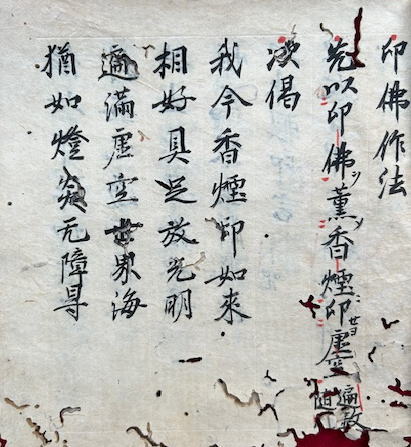 印佛作法
先以印佛薰香煙印虚空遍数随
次偈
我今香煙印如來
相好具足放光明
遍滿虚空世界海
猶如燈炎无障㝵